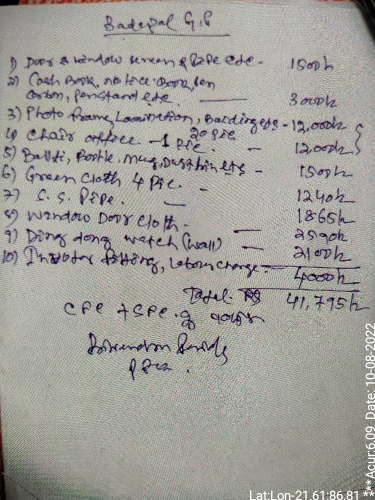 Badepal G.P
1) Door & window screen & pipe etc - 1500/-
2) Cash Book, notice Book, pen
Carbon, penstand etc. — 3000/-
3) Photo Frame, Lamination, Baidinget - 12,000/-
20 pic
4) chair office - 1 pic - 12,000/-
5) Balti, Bottle, Mug, Dustbin ets - 1500/-
6) Green Cloth 4 pic. - 1240/-
7) S.S. Pipe. - 1865/-
8) Window Door Cloth. - 2590/-
9) Ding dong watch (wall) - 2100/-
10) Invator fitting, Labour charge - 4000/-
Total. RS 41,795/-
CFC + SFC
Lat:Lon-21.61:86.81
***Acur:6.09 Date: 10-08-2022 ***